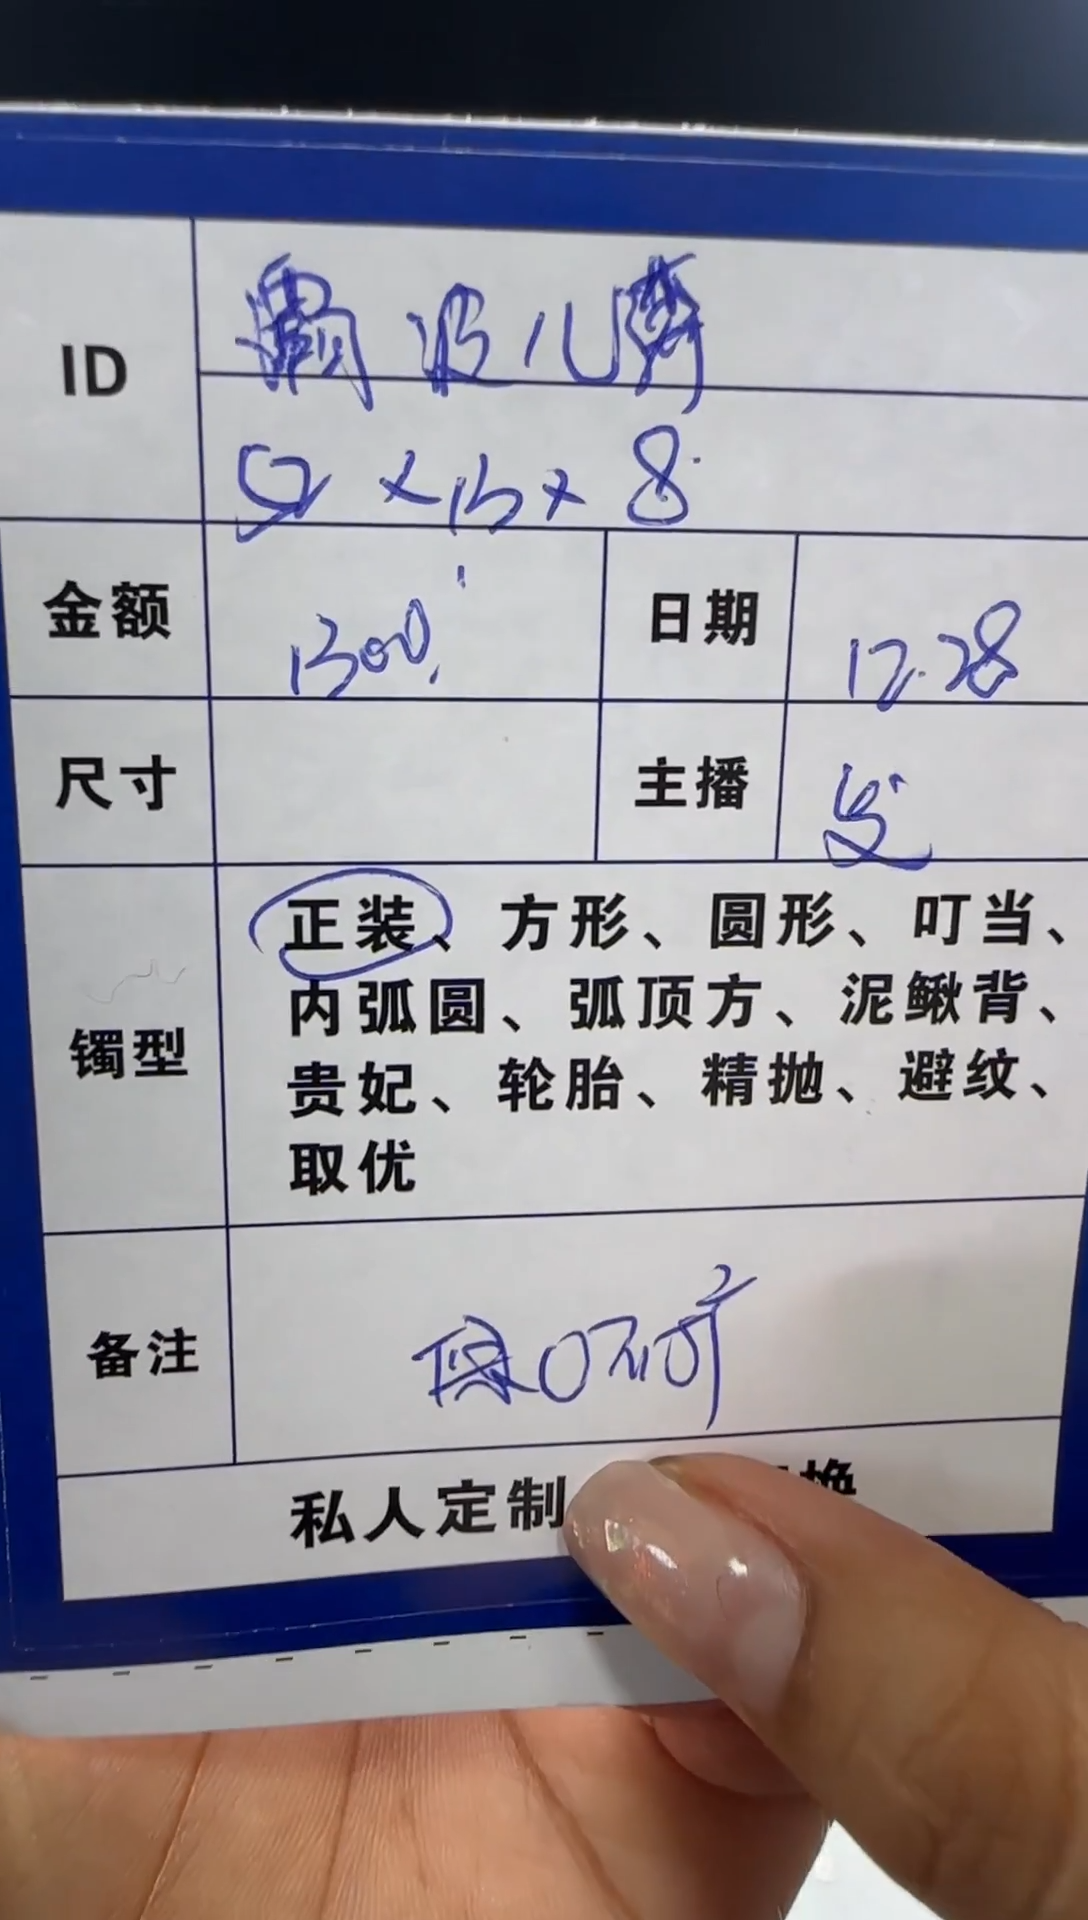 ID
灞波儿奔
52×13×8
金额
1300
日期
12.28
尺寸
主播
镯型
正装、方形、圆形、叮当、
内弧圆、弧顶方、泥鳅背、
贵妃、轮胎、精抛、避纹、
取优
备注
私人定制
换